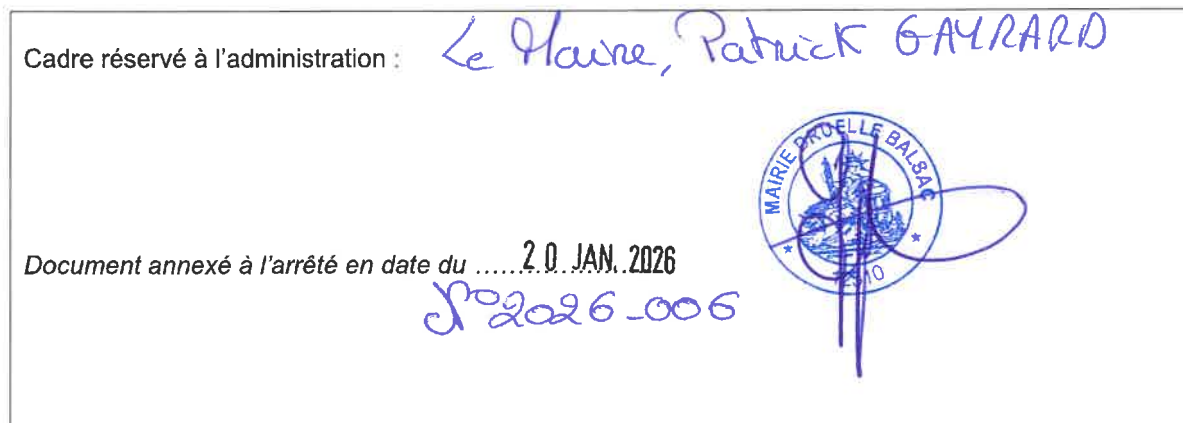 Cadre réservé à l'administration : Le Maire, Patrick GAYRARD
MAIRIE DRUELLE BALSAC
Document annexé à l'arrêté en date du ......20 JAN. 2026
N°2026-006